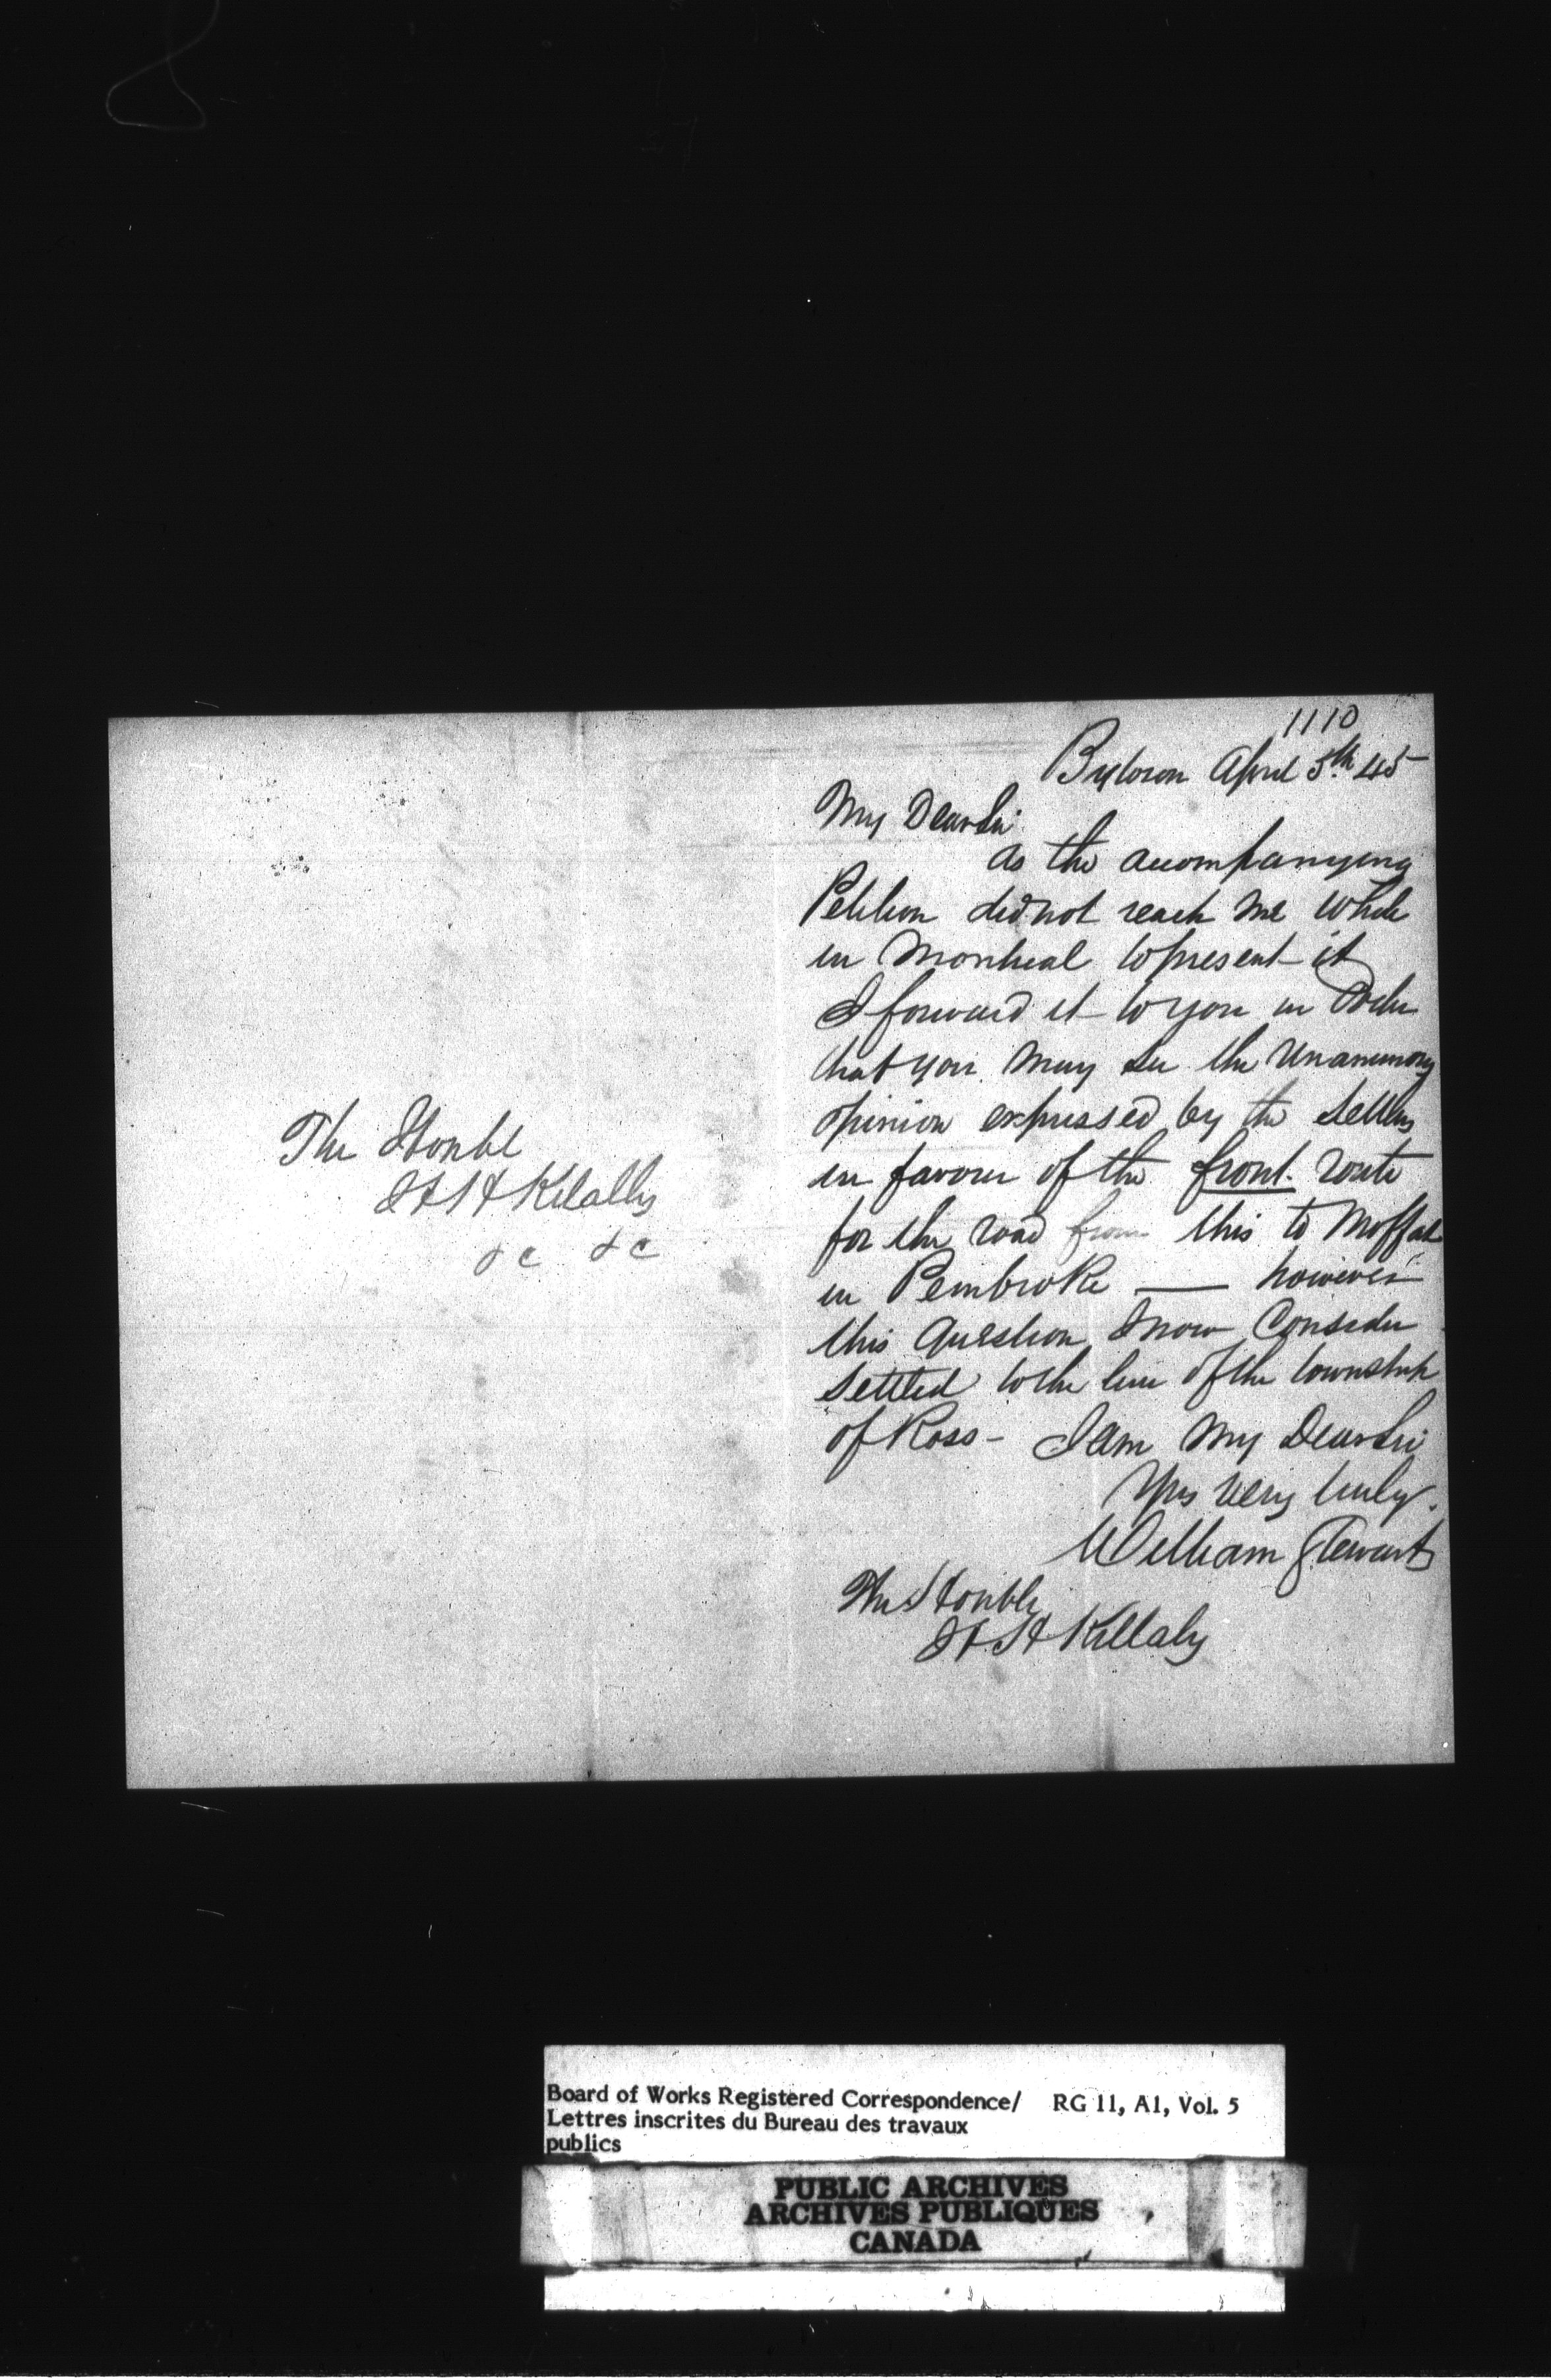 1110
Bytown April 5th 45
My Dear Sir
As the accompanying
Petition did not reach me while
in Montreal to present it
I forward it to you in Order
that you may see the Unanimous
opinion expressed by the Settlers
in favour of the front route
for the road from this to Moffat
in Pembroke — however
this Question I now Consider
settled to the line of the township
of Ross - I am My Dear Sir
Yrs very truly.
William Stewart
The Honble
H H Killaly
The Honble
H H Kilally
&c &c
Board of Works Registered Correspondence/ RG 11, A1, Vol. 5
Lettres inscrites du Bureau des travaux
publics
PUBLIC ARCHIVES
ARCHIVES PUBLIQUES
CANADA